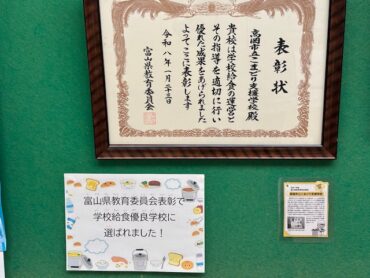 表彰状
高岡市立こまどり支援学校殿
貴校は学校給食の運営と
その指導を適切に行い
優れた成果をあげられました
よってここに表彰します
令和八年一月二十三日
富山県教育委員会
富山県教育委員会表彰で
学校給食優良学校に
選ばれました!